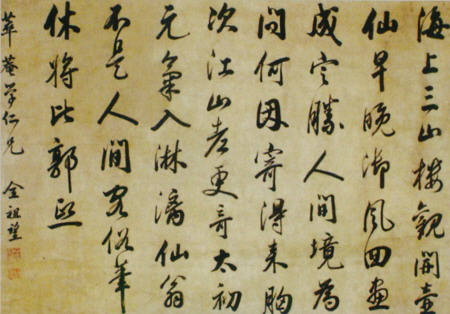 海上三山樓觀開壺
仙早晚御風回畫
成定勝人間境為
問何因寄得來胸
次江山老更奇太初
元氣入淋漓仙翁
不是人間客俗筆
休將比郭熙
菴學仁兄 全祖望